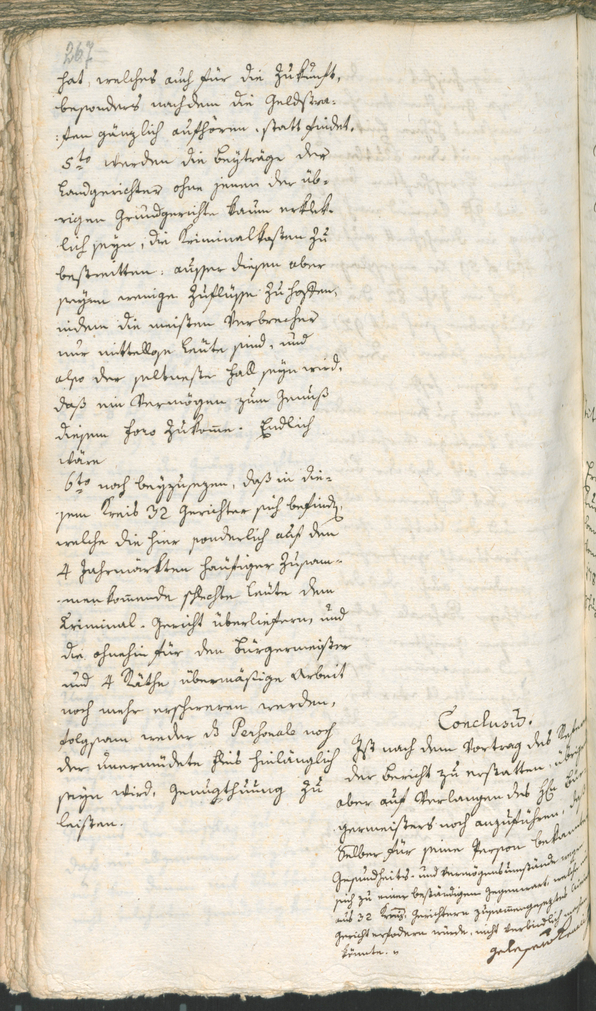 267
hat, welches auch für die Zukunft,
besonders nachdem die Geldstra-
fen gänzlich aufhören, statt findet.
5to werden die Beyträge der
Landgerichter ohne jenen der üb-
rigen Grundgerichte kaum erklek-
lich seyn, die Kriminalkosten zu
bestreitten: ausser diesen aber
seyen wenige Zuflüsse zu hoffen,
indem die meisten Verbrecher
nur mittellose Leute sind, und
also der seltneste Fall seyn wird,
daß ein Vermögen zum Genuß
diesem foro zukome. Endlich
wäre
6to noch beyzusezen, daß in die-
sem Kreis 32 Gerichter sich befinden,
welche die hier sonderlich auf den
4 Jahrmärkten häufiger zusam-
menkomende schlechte Leute dem
Kriminal-Gericht überliefern, und
die ohnehin für den Bürgermeister
und 4 Räthe übermäßige Arbeit
noch mehr erschweren werden,
folgsam weder ds Personale noch
der unermüdete Fleis hinlänglich
seyn wird, Genugthuung zu
leisten.
Conclusum.
Ist nach dem Vortrag des
der Bericht zu erstatten, übrigens
aber auf Verlangen des Hn Bür
germeisters noch anzuführen, daß
Selber für seine Person bekannten
Gesundheits- und Vermögensumstände wegen
sich zu einer beständigen Gegenwart, welche
aus 32 Gerichtern zusammengesezte
Gericht erfodern würde, nicht verbindlich machen
könnte.